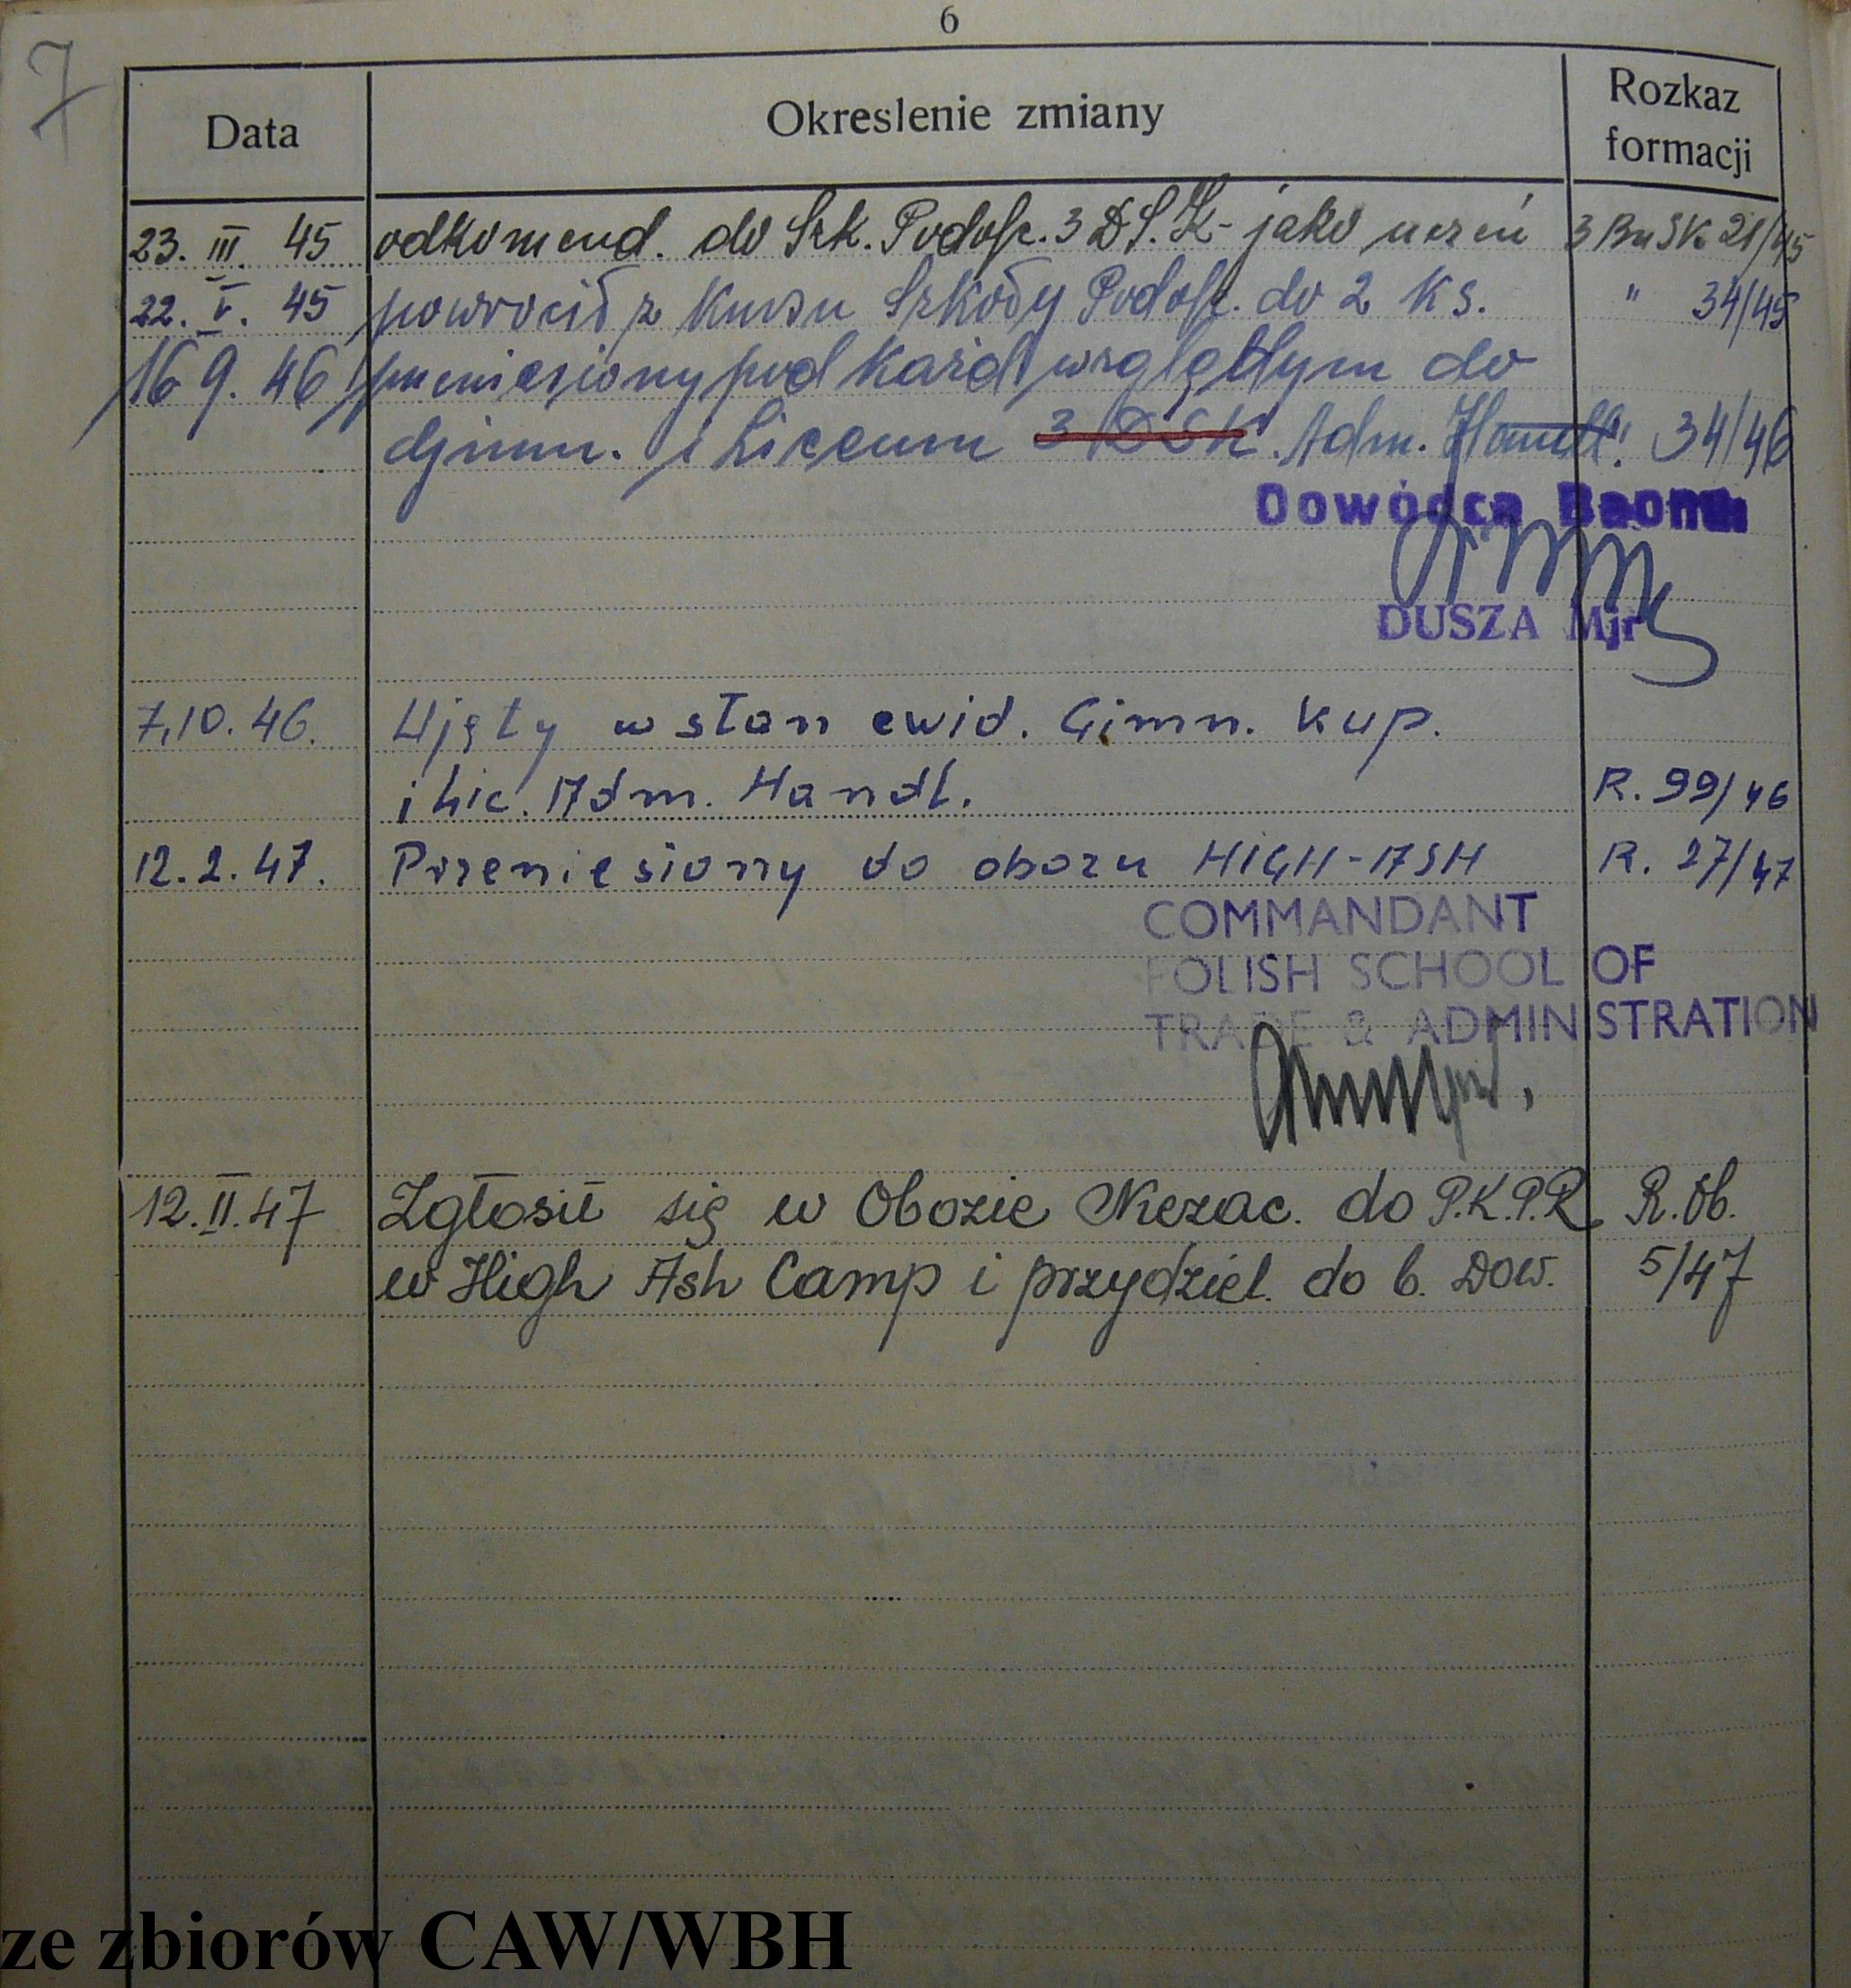 6
7
Data Okreslenie zmiany Rozkaz formacji
23. III. 45 odkomend. do Szk. Podofc. 3 D.S.K - jako uczeń 3 Bn SK 21/45
22. V. 45 powrocił z kursu Szkoły Podofc. do 2 ks. " 34/45
16 9. 46 przeniesiony pod każd względym do
Gimn. i Liceum 3 DSK. Adm. Handl. " 34/46
Dowódca Baonu
DUSZA Mjr
7.10.46. Ujęty w stan ewid. Gimn. Kup.
i Lic. Adm. Handl. R. 99/46
12.2.47. Przeniesiony do obozu HIGH-ASH R. 27/47
COMMANDANT
POLISH SCHOOL OF
TRADE & ADMINISTRATION
12.II.47 Zgłosił się w Obozie Niezac. do P.K.P.R. R. Ob.
w High Ash Camp i przydziel. do b. Dow. 5/47
ze zbiorów CAW/WBH